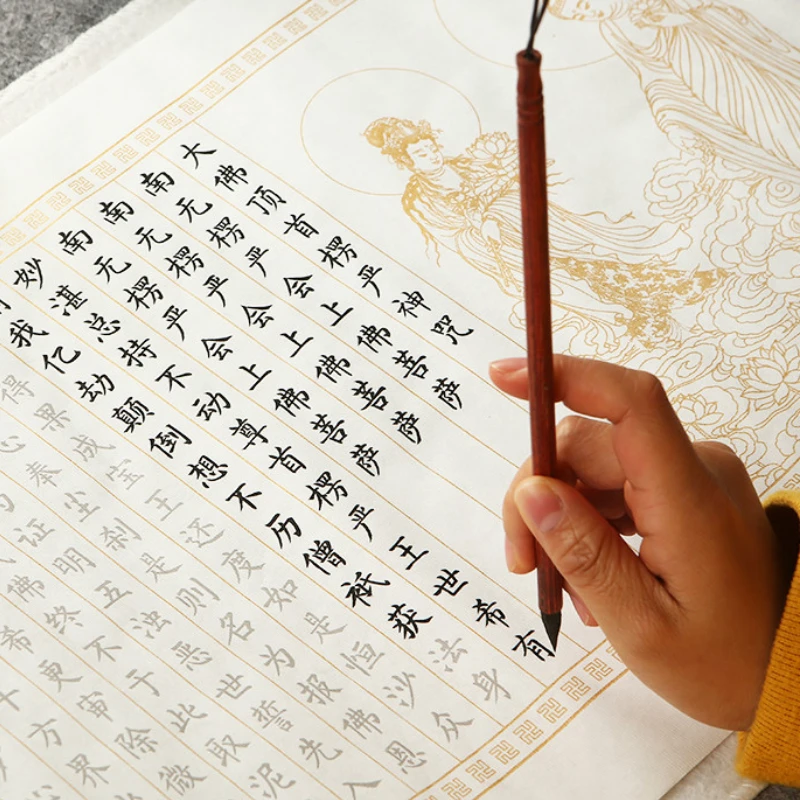 大佛顶首楞严神咒
南无楞严会上佛菩萨
南无楞严会上佛菩萨
南无楞严会上佛菩萨
妙湛总持不动尊首楞严王世希有
我亿劫颠倒想不历僧祇获法身
得果成宝王还度如是恒沙众
心奉尘刹是则名为报佛恩
证明五浊恶世誓先入
佛终不于此取泥
希更审除微
十方界